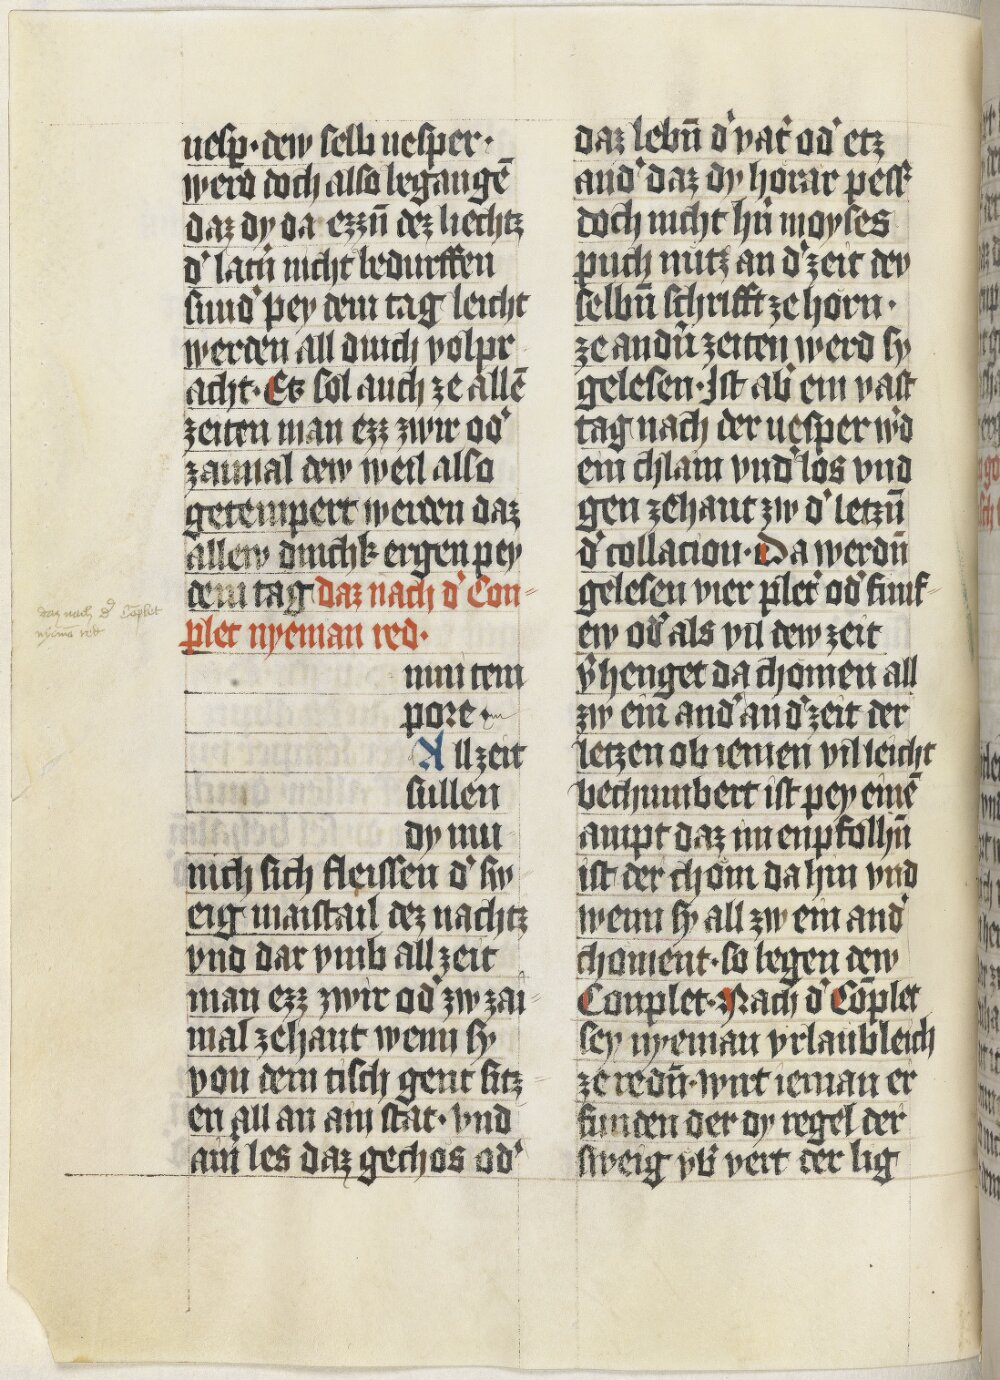 uesp̱· dew selb uesper ·
werd̄ doch also begangē
daz dy da ezzn̄ dez liechtz
d᾽ latn̄ nicht bedurffen
sund᾽ pey dem tag leicht
werden all durch volpr
acht · Ez sol auch ze allē
zeiten man ezz zwir od᾽
zaimal dew weil also
getempert werden daz
allew durchk ergen pey
dem tag daz nach d᾽ Con=
plet nyeman red ·
mni tem
pore ·
All zeit
sullen
dy mu
nich sich fleissen d᾽ sw
eig maistail dez nachtz
vnd dar vmb all zeit
man ezz zwir od᾽ zw zai=
mal zehant wenn sy
von dem tisch gent sitz=
en all an aim stat · vnd
ain̄ les daz gechos od᾽
daz lebn̄ d᾽ vat᾽ od᾽ etz
and᾽ daz dy horar pess᾽
doch nicht hn̄ moyses
puch nutz an d᾽ zeit dev
selbn̄ schrifft ze horn ·
ze andn̄ zeiten werd sy
gelesen · Ist ab᾽ ein vast
tag nach der uesper w᾽d
ein chlain vnd᾽los vnd
gen zehant zw d᾽ letzn̄
d᾽ collacion · Da werdn̄
gelesen vier plet᾽ od᾽ funf=
ew od᾽ als vil dew zeit
v᾽henget da chomen all
zw ein and᾽ an d᾽ zeit der
letzen ob iemen vil leicht
bechumbert ist pey einē
ampt daz im enpfolhn̄
ist der chom da hin vnd
wenn sy all zw ein and᾽
choment · so legen dew
Conplet · Nach d᾽ Cōplet
sey nyeman vrlaubleich
ze redn̄ · wirt ieman er
funden der dy regel der
sweig vb᾽ vert der lig
daz nach d᾽ Cōplet
nyemā red